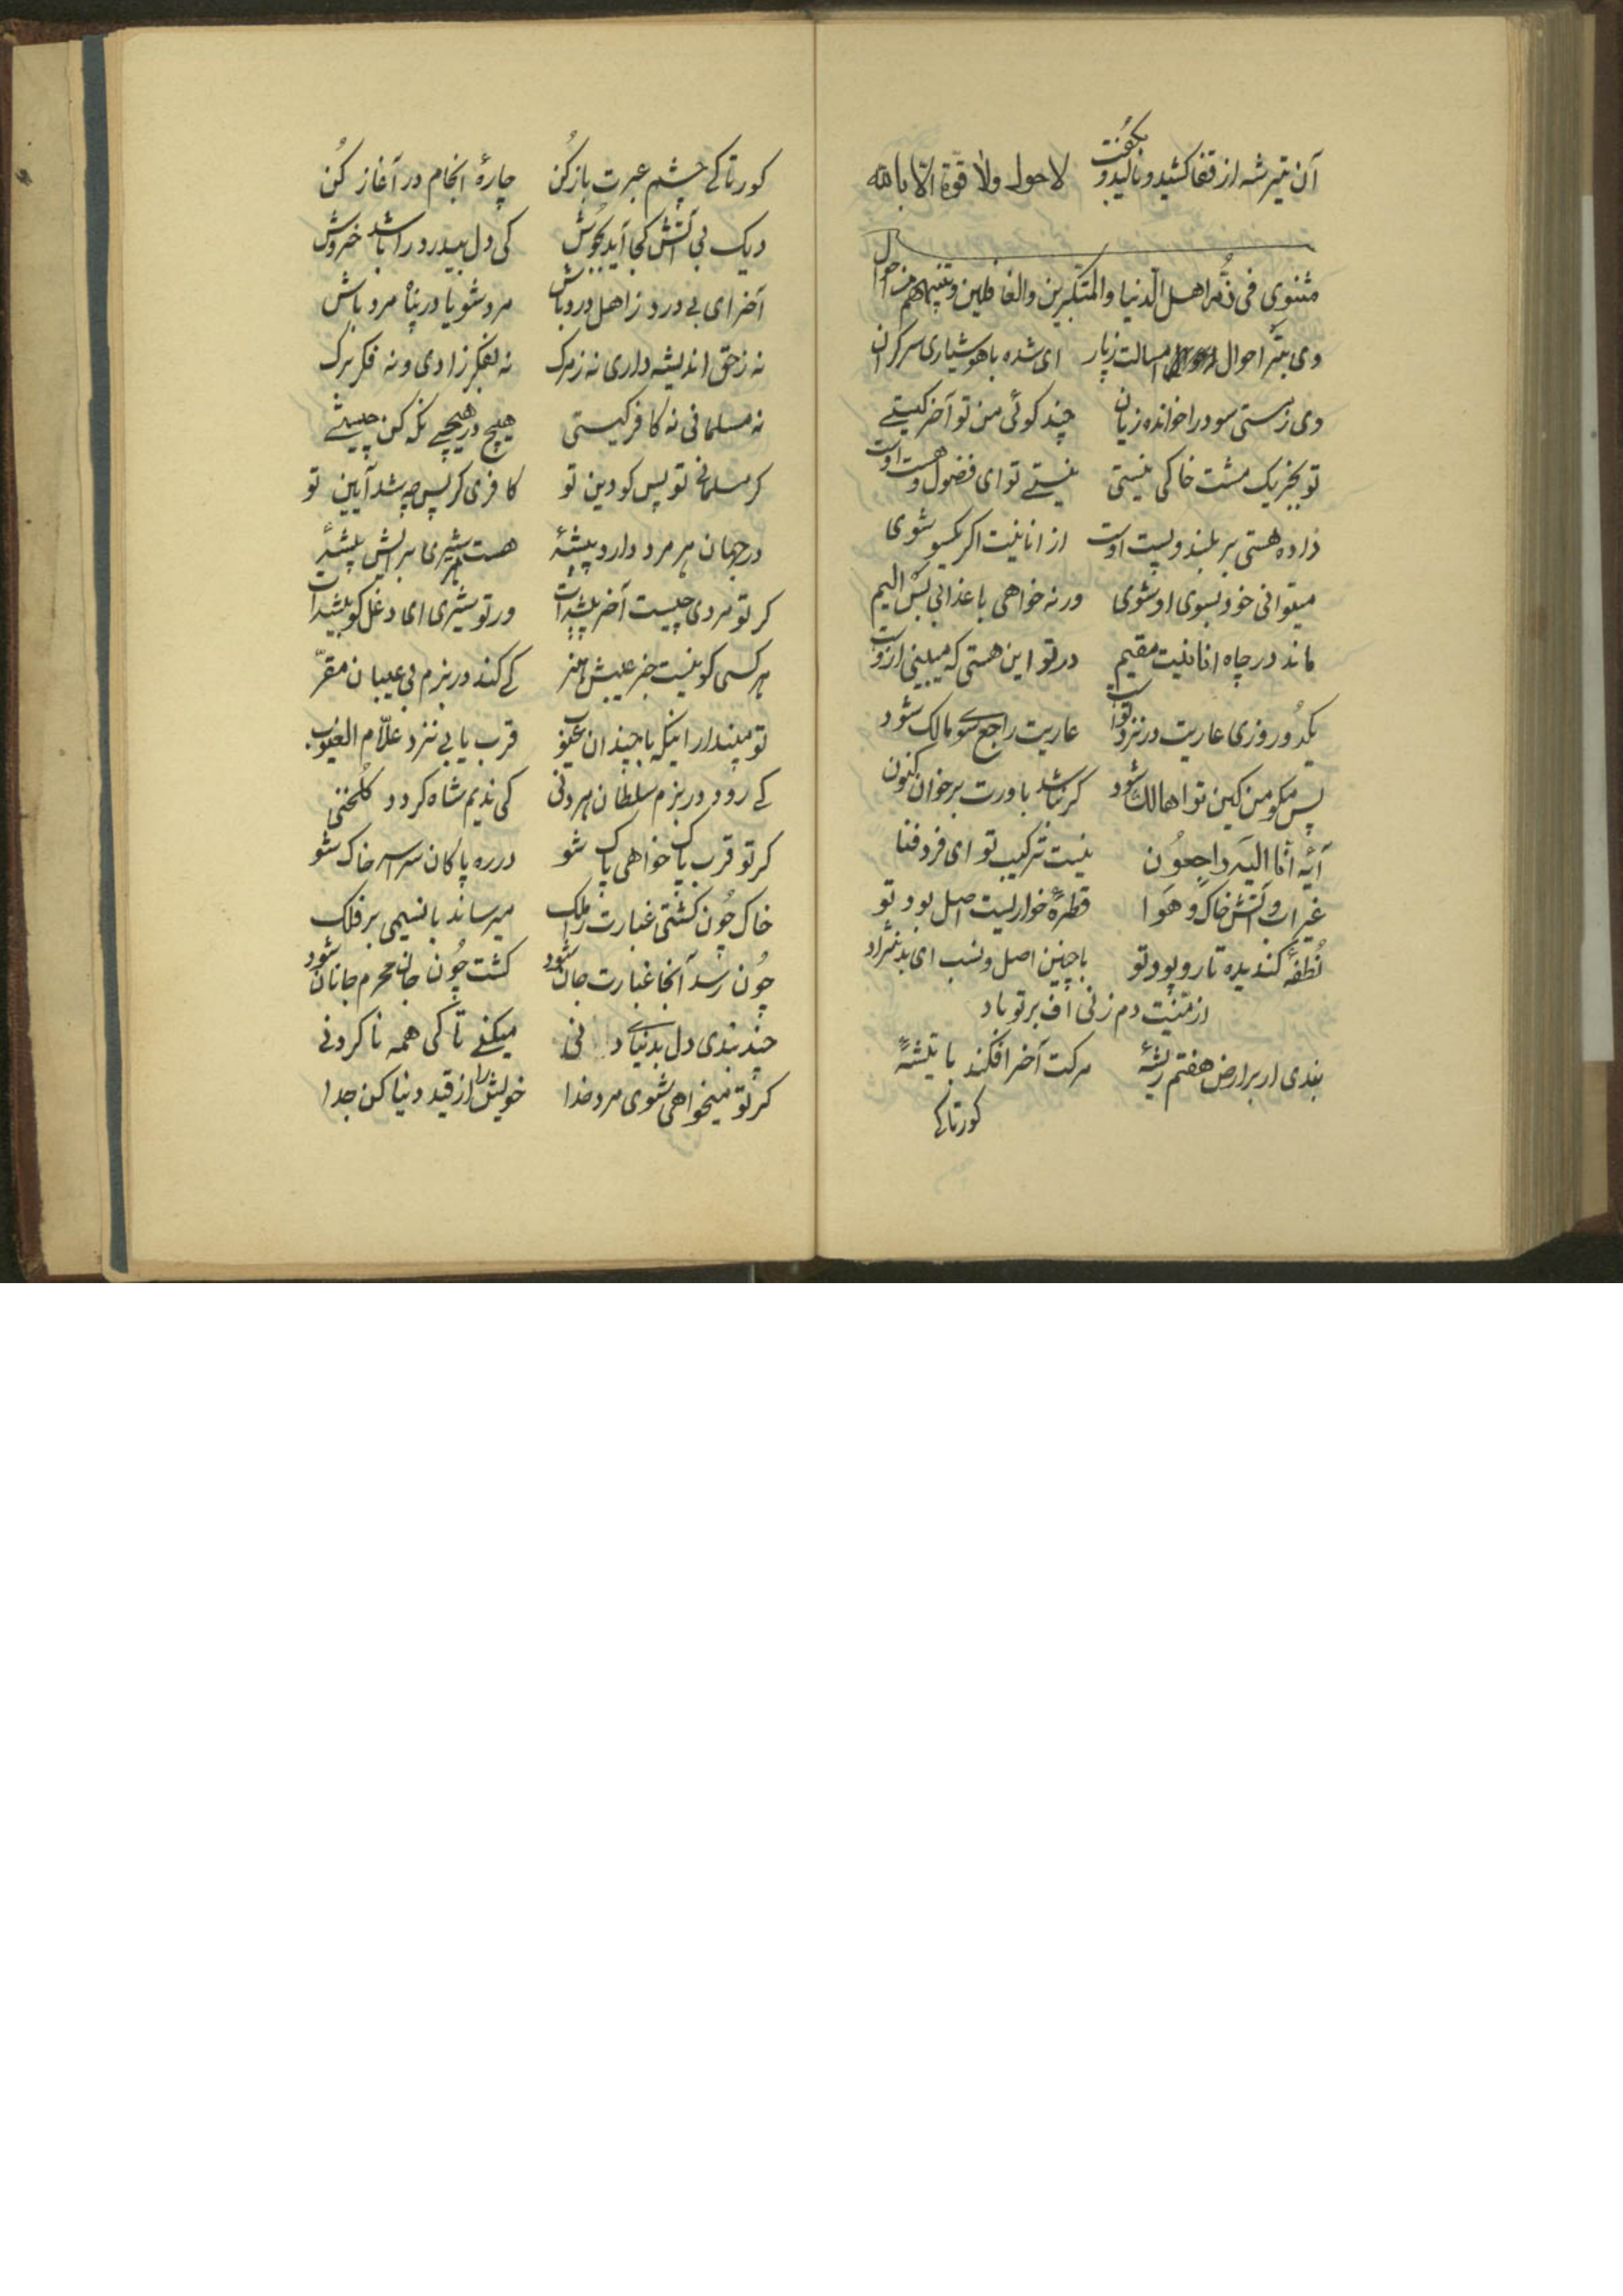 آن تیر شه از قفا کشید و نالید و بگفت لا حول ولا قوة الّا بالله
مثنوی فی ذمّ اهل الدنیا والمتکبرین والغافلین و تنبیههم من
وی بتر احوال امسالت ز پار ای شده با هوشیاری سرگران
وی ز مستی سود را خوانده زیان چند گوئی من تو آخر کیستی
تو بجز یک مشت خاکی نیستی نیستی تو ای فضول و هست اوست
داده هستی بر بلند و پست اوست از انانیت اگر یکسو شوی
میتوانی خود بسوی او شوی ورنه خواهی با عذابی بس الیم
ماند در چاه انانیت مقیم در تو این هستی که میبینی ازوست
یکدو روزی عاریت در نزد تواست عاریت راجع سوی مالک شود
پس مگو من کین تو را هالک شود گر نباشد باورت برخوان کنون
آیهٔ انّا الیه راجعون نیست ترکیب تو ای فرد فنا
غیر آب و آتش و خاک و هوا قطرهٔ خواریست اصل بود تو
نطفهٔ گندیده تار و پود تو با چنین اصل و نسب ای بد نژاد
از منیّت دم زنی اف بر تو باد
بندی ار بر ارض هفتم ریشهٔ مرگت آخر افکند با تیشهٔ
کور تا کی
کور تا کی چشم عبرت باز کن چارهٔ انجام در آغاز کن
دیک بی آتش کجا آید بجوش کی دل بیدرد را باشد خروش
آخر ای بی درد ز اهل درد باش مرد شو یا در پناه مرد باش
نه ز حق اندیشه داری نه ز مرگ نه بفکر زادی و نه فکر برگ
نه مسلمانی نه کافر کیستی هیچ در هیچی نگه کن چیستی
گر مسلمانی تو پس کو دین تو کافری گر پس چه شد آیین تو
در جهان هر مرد دارد پیشهٔ هست هر شیری برایش بیشهٔ
گر تو مردی چیست آخر پیشه‌ات ور تو شیری ای دغل کو بیشه‌ات
هر کسی کو نیست جز عیبش هنر کی کند در بزم بی عیبان مقرّ
تو مپندار اینکه با چندان عیوب قرب یابی نزد علّام الغیوب
کی رود در بزم سلطان هر دنی کی ندیم شاه گردد گلخنی
گر تو قرب پاک خواهی پاک شو در ره پاکان سراسر خاک شو
خاک چون گشتی غبارت را ملک میرساند با نسیمی بر فلک
چون رسد آنجا غبارت جان شود گشت چون جان محرم جانان شود
چند بندی دل بدنیای دنی میکنی تا کی همه ناکردنی
گر تو میخواهی شوی مرد خدا خویش را از قید دنیا کن جدا